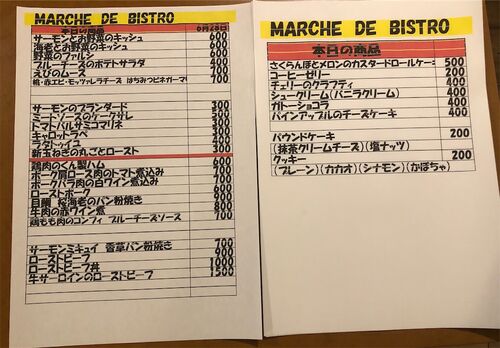 MARCHE DE BISTRO
本日の商品 6月28日
サーモンとお野菜のキッシュ 600
海老とお野菜のキッシュ 600
野菜のファルシ 700
ブルーチーズのポテトサラダ 400
えびのムース 700
桃・赤エビ・モッツァレラチーズ はちみつビネガーマリネ 700
サーモンのブランダード 300
ミートソースのケークサレ 500
トマトバルサミコマリネ 300
キャロットラペ 300
ラタトゥイユ 300
新玉ねぎの丸ごとロースト 300
鶏肉のくん製ハム 600
ポーク肩ロース肉のトマト煮込み 700
ポークバラ肉の白ワイン煮込み 700
ローストポーク 600
目鯛 桜海老のパン粉焼き 900
牛肉の赤ワイン煮 800
鶏もも肉のコンフィ ブルーチーズソース 700
サーモンミキュイ 香草パン粉焼き 700
ローストビーフ 900
ローストビーフ丼 1000
牛サーロインのローストビーフ 1500
MARCHE DE BISTRO
本日の商品
さくらんぼとメロンのカスタードロールケーキ 500
コーヒーゼリー 200
チェリーのクラフティ 400
シュークリーム(バニラクリーム) 400
ガトーショコラ 400
パインアップルのチーズケーキ 400
パウンドケーキ 200
(抹茶クリームチーズ)(塩ナッツ)
クッキー 200
(プレーン)(カカオ)(シナモン)(かぼちゃ)